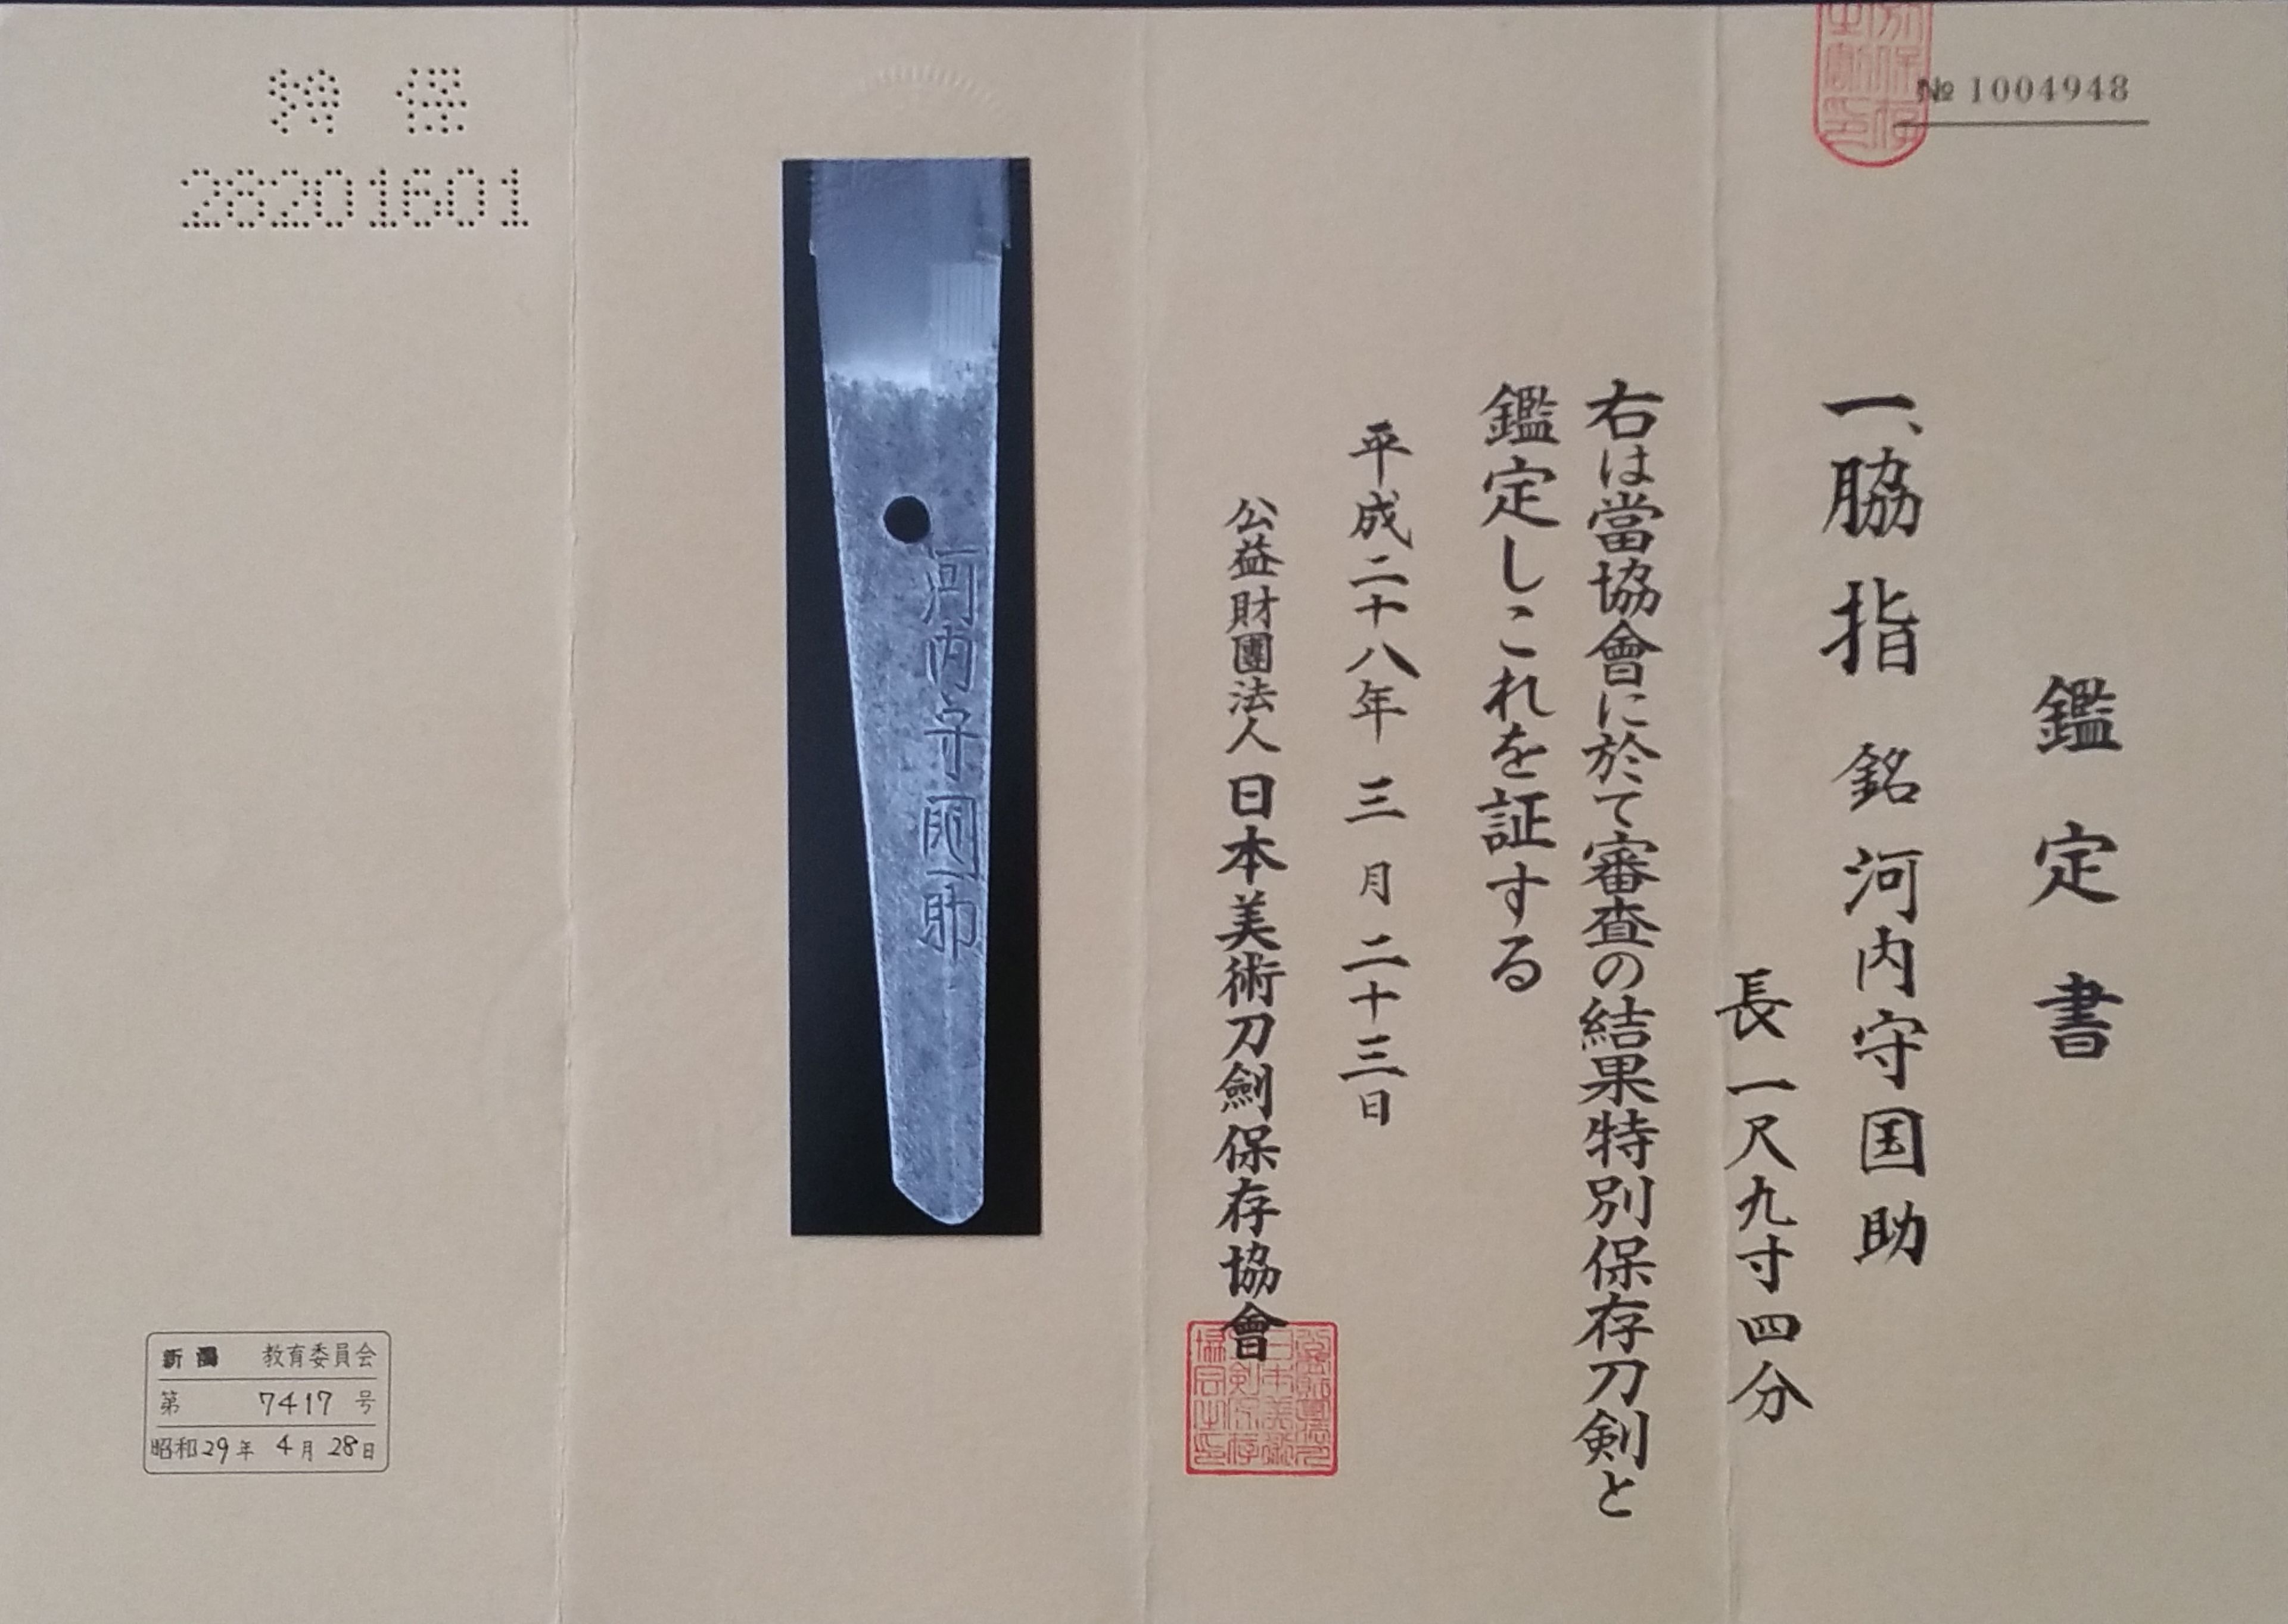 № 1004948
鑑定書
一、脇指 銘 河内守国助
長一尺九寸四分
右は當協會に於て審査の結果特別保存刀剣と
鑑定しこれを証する
平成二十八年 三月 二十三日
公益財團法人日本美術刀劍保存協會
河内守國助
特保
28201601
新潟 教育委員会
第 7417 号
昭和29年 4月 28日